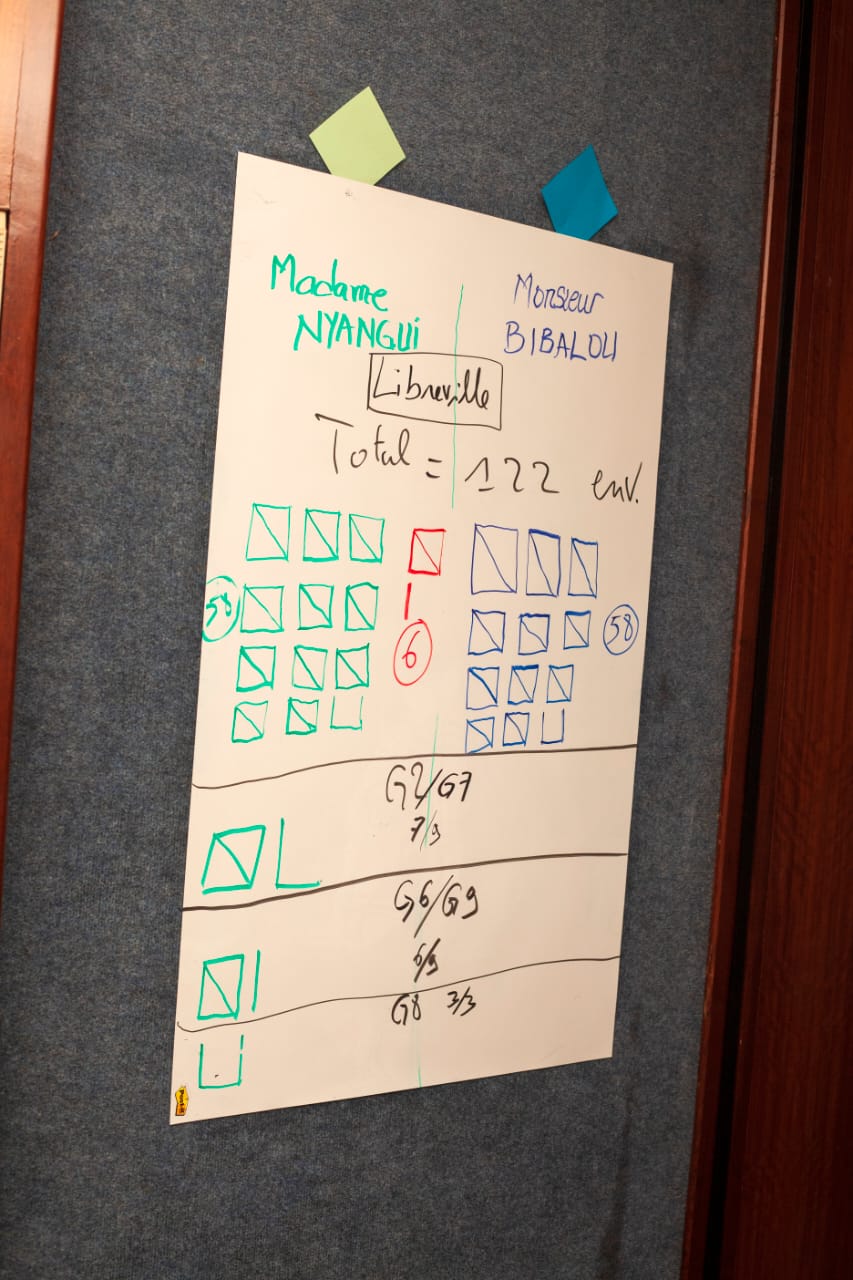 Madame
NYANGUi
Monsieur
BIBALOU
Libreville
Total = 122 env.
58
6
58
G2/G7
7/9
G6/G9
6/9
G8 3/3
Post-it